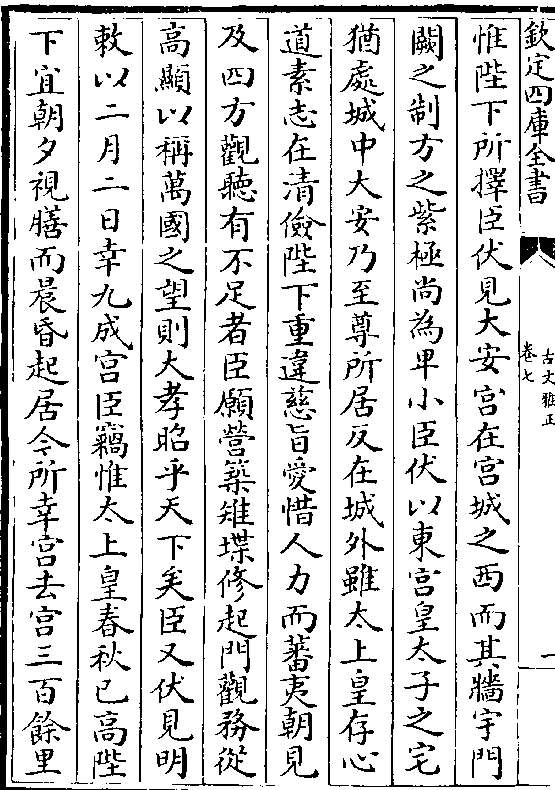 欽定四庫全書
古文雅正
卷七
一
惟陛下所擇臣伏見大安宮在宮城之西而其牆宇門
闕之制方之紫極尚為卑小臣伏以東宮皇太子之宅
猶處城中大安乃至尊所居反在城外雖太上皇存心
道素志在清儉陛下重違慈旨愛惜人力而蕃夷朝見
及四方觀聽有不足者臣願營築雉堞修起門觀務從
高顯以稱萬國之望則大孝昭乎天下矣臣又伏見明
敕以二月二日幸九成宮臣竊惟太上皇春秋已高陛
下宜朝夕視膳而晨昏起居今所幸宮去宮三百餘里